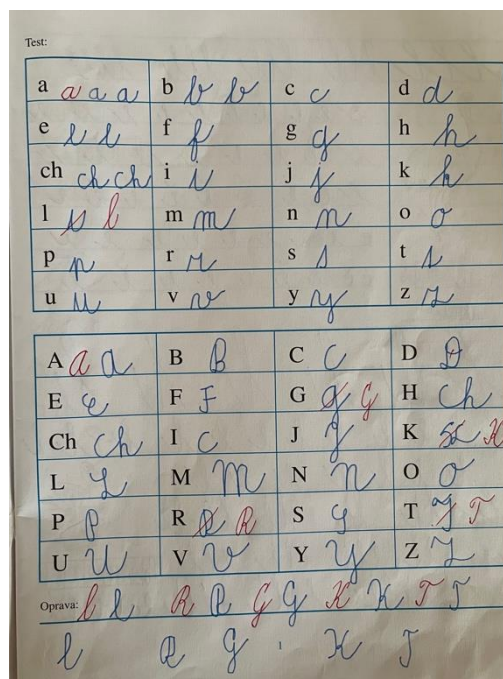 Test:
a a a a b b b c c d d
e e e f f g g h h
ch ch ch i i j j k k
l l m m n n o o
p p r r s s t
u u v v y y z z
A a a B B C C D D
E F F G G H Ch
Ch Ch I C J J K K
L L M M N N O O
P P R R S T T
U U V V Y Y Z Z
Oprava: l l R R G G K K T T
l R G K T